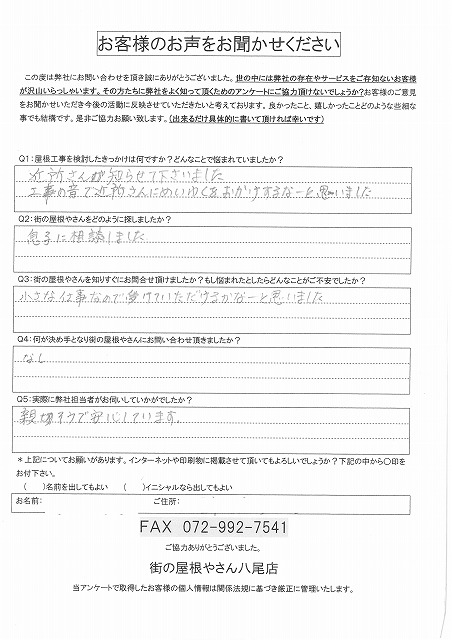 お客様のお声をお聞かせください
この度は弊社にお問い合わせを頂き誠にありがとうございました。世の中には弊社の存在やサービスをご存知ないお客様
が沢山いらっしゃいます。その方たちに弊社をよく知って頂くためのアンケートにご協力頂けないでしょうか?お客様のご意見
をお聞かせいただき今後の活動に反映させていただきたいと考えております。良かったこと、嬉しかったことどのような些細な
事でも結構です。是非ご協力お願い致します。(出来るだけ具体的に書いて頂ければ幸いです)
Q1:屋根工事を検討したきっかけは何ですか?どんなことで悩まれていましたか?
近所さんが知らせて下さいました
工事の音で近所さんにめいわくをおかけするなーと思いました
Q2:街の屋根やさんをどのように探しましたか?
息子に相談しました
Q3:街の屋根やさんを知りすぐにお問合せ頂けましたか?もし悩まれたとしたらどんなことがご不安でしたか?
小さな仕事なので受けていただけるかなーと思いました
Q4:何が決め手となり街の屋根やさんにお問い合わせ頂きましたか?
なし
Q5:実際に弊社担当者がお伺いしていかがでしたか?
親切そうで安心しています。
*上記についてお願いがあります。インターネットや印刷物に掲載させて頂いてもよろしいでしょうか?下記の中から〇印を
お付下さい。
( )名前を出してもよい ( )イニシャルなら出してもよい
お名前: ご住所:
FAX 072-992-7541
ご協力ありがとうございました。
街の屋根やさん八尾店
当アンケートで取得したお客様の個人情報は関係法規に基づき厳正に管理いたします。